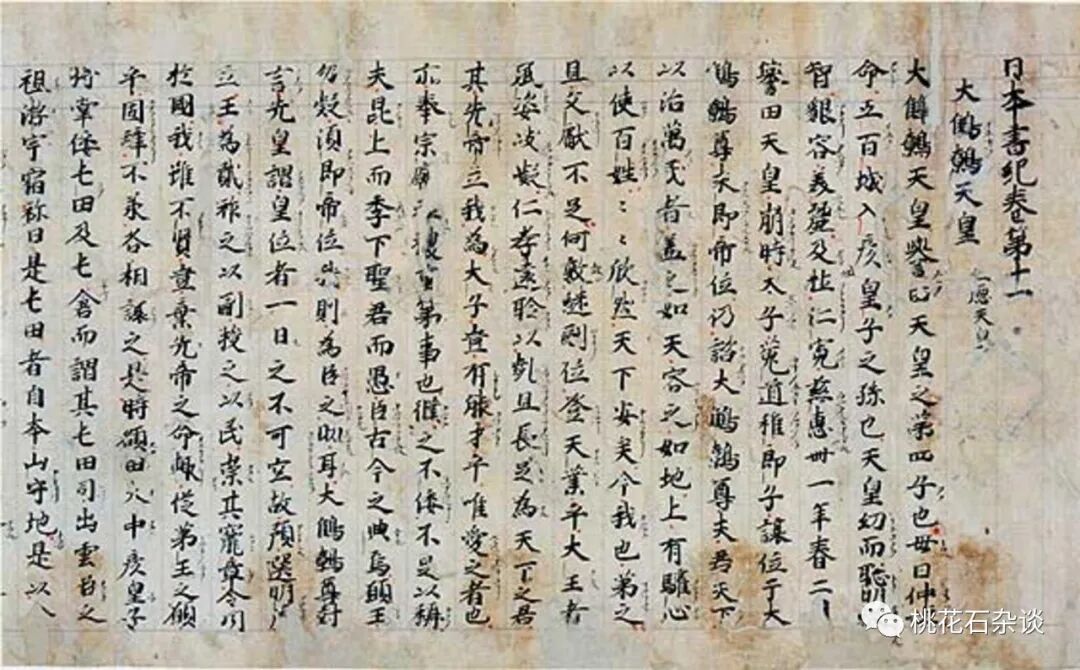 日本書紀卷第十一
大鷦鷯天皇 仁德天皇
大鷦鷯天皇譽田天皇之第四子也母曰仲
命五百城入彦皇子之孫也天皇幼而聡明
智貌容美麗及壮仁寛慈惠卌一年春二
譽田天皇崩時太子菟道稚郎子讓位于大
鷦鷯尊未即帝位仍諮大鷦鷯尊夫君天下
以治萬民者蓋之如天容之如地上有驩心
以使百姓〻〻欣然天下安矣今我也弟之
且文獻不足何敢継嗣位登天業乎大王者
風姿岐嶷仁孝遠聆以歯且長足為天下之君
其先帝立我為太子豈有能才乎唯愛之者也
亦奉宗廟社稷重事也僕之不佞不足以稱
夫昆上而季下聖君而愚臣古今之典焉願王
勿疑須即帝位我則為臣之助耳大鷦鷯尊對
言先皇謂皇位者一日之不可空故預選明
立王為貳祚之以嗣授之以民崇其寵章令聞
於國我雖不賢豈棄先帝之命輙従弟王之願
乎固辞不承各相讓之是時額田大中彦皇子
将掌倭屯田及屯倉而謂其屯田司出雲臣之
祖淤宇宿祢曰是屯田者自本山守地是以
桃花石杂谈